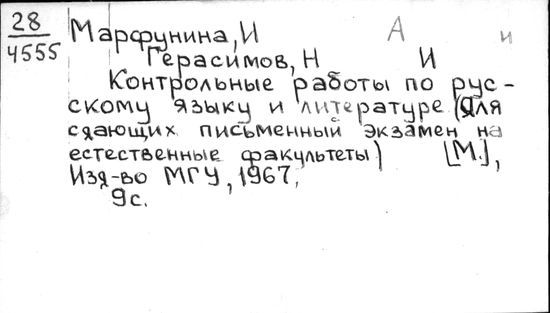 28
4555
Марфунина, И А и
Герасимов, Н И
Контрольные работы по рус-
скому языку и литературе (для
сдающих письменный экзамен на
естественные факультеты) [М.],
Изд-во МГУ, 1967,
9с.